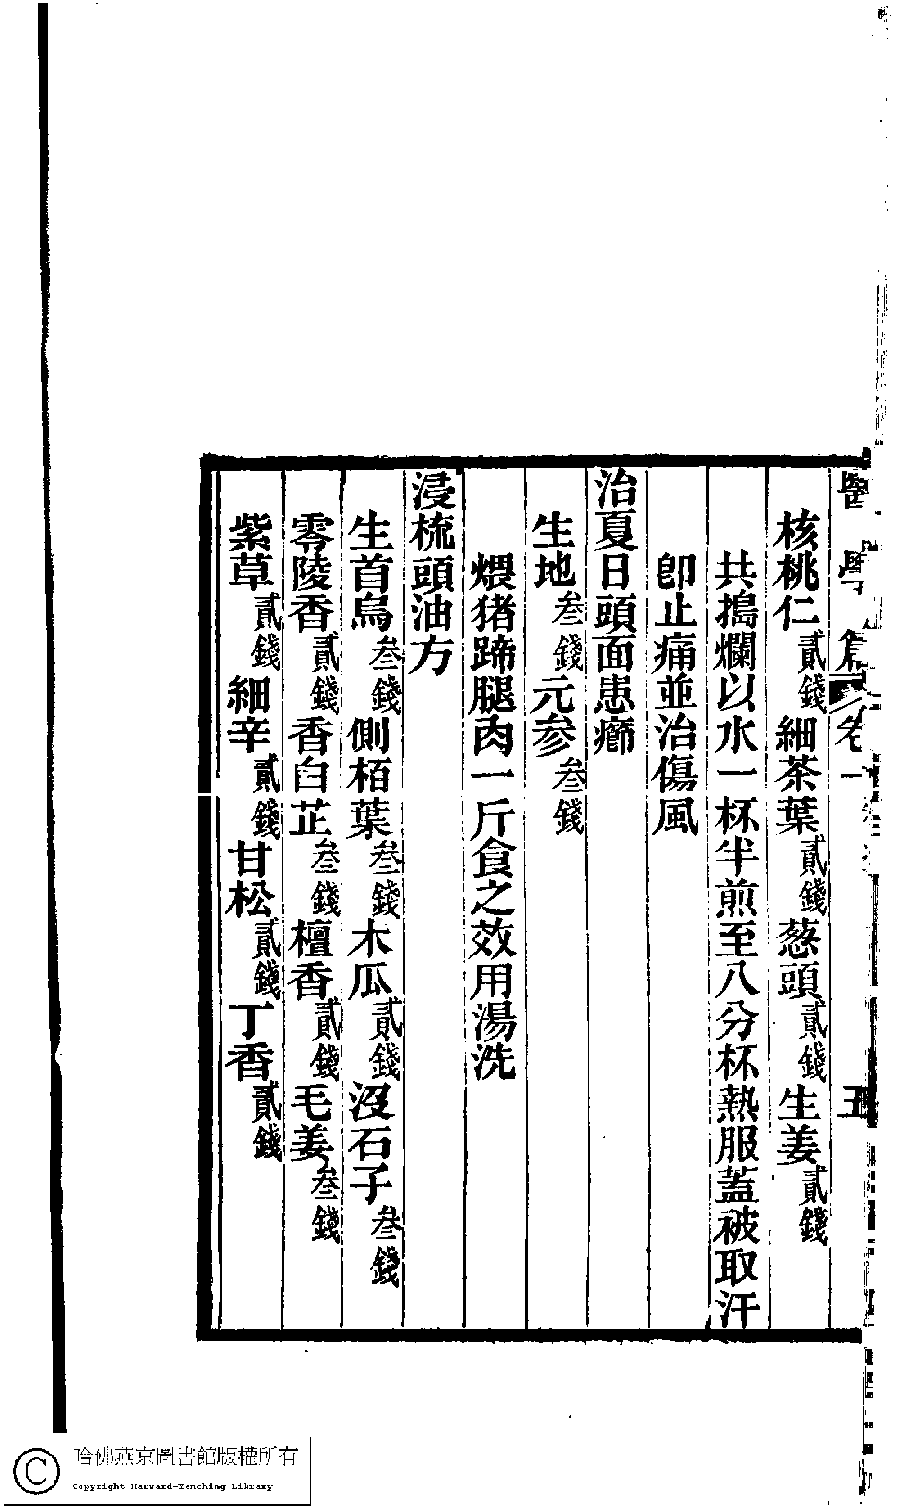 醫學篇 卷一 五
核桃仁貳錢細茶葉貳錢葱頭貳錢生姜貳錢
共搗爛以水一杯半煎至八分杯熱服蓋被取汗
卽止痛並治傷風
治夏日頭面患癤
生地叁錢元参叁錢
煨猪蹄腿肉一斤食之效用湯洗
浸梳頭油方
生首烏叁錢側栢葉叁錢木瓜貳錢沒石子叁錢
零陵香貳錢香白芷叁錢檀香貳錢毛姜叁錢
紫草貳錢細辛貳錢甘松貳錢丁香貳錢
哈佛燕京圖書館版權所有
Copyright Harvard-Yenching Library